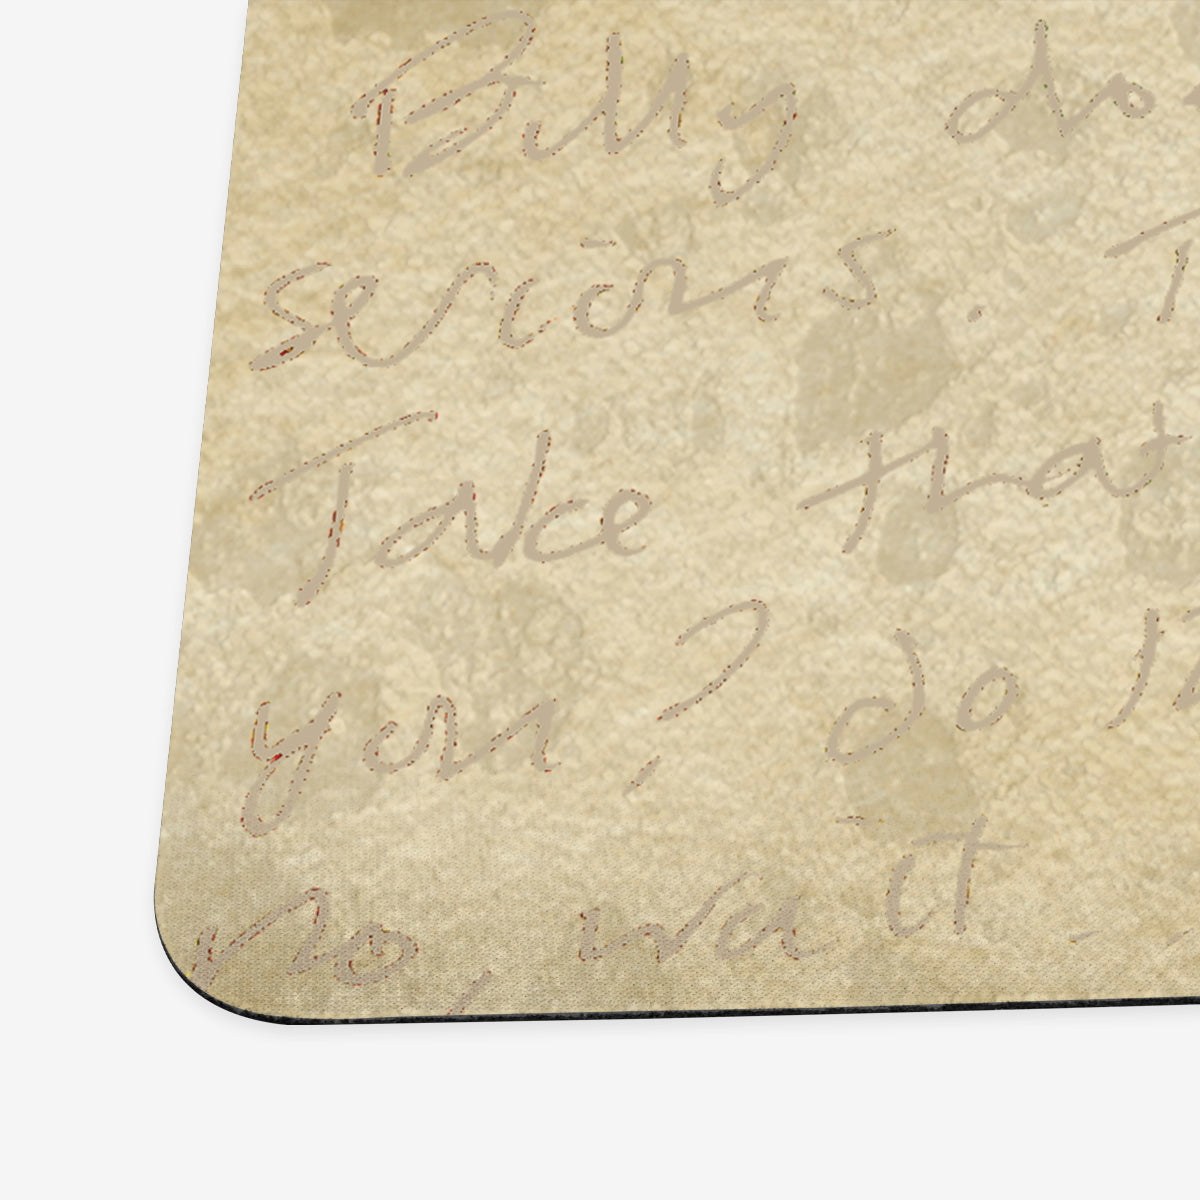 Billy do
serious. T
Take that
you? do I
no, wait -